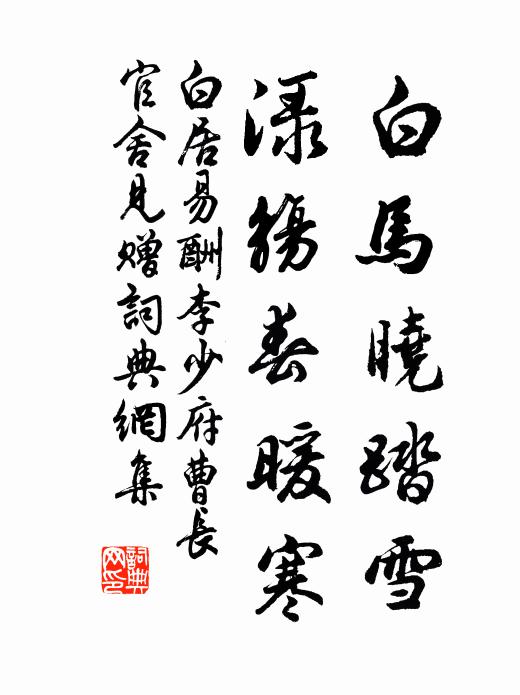 白馬曉踏雪
渌觴春暖寒
白居易酬李少府曹長
官舍見贈詞典網集
詞典
网印